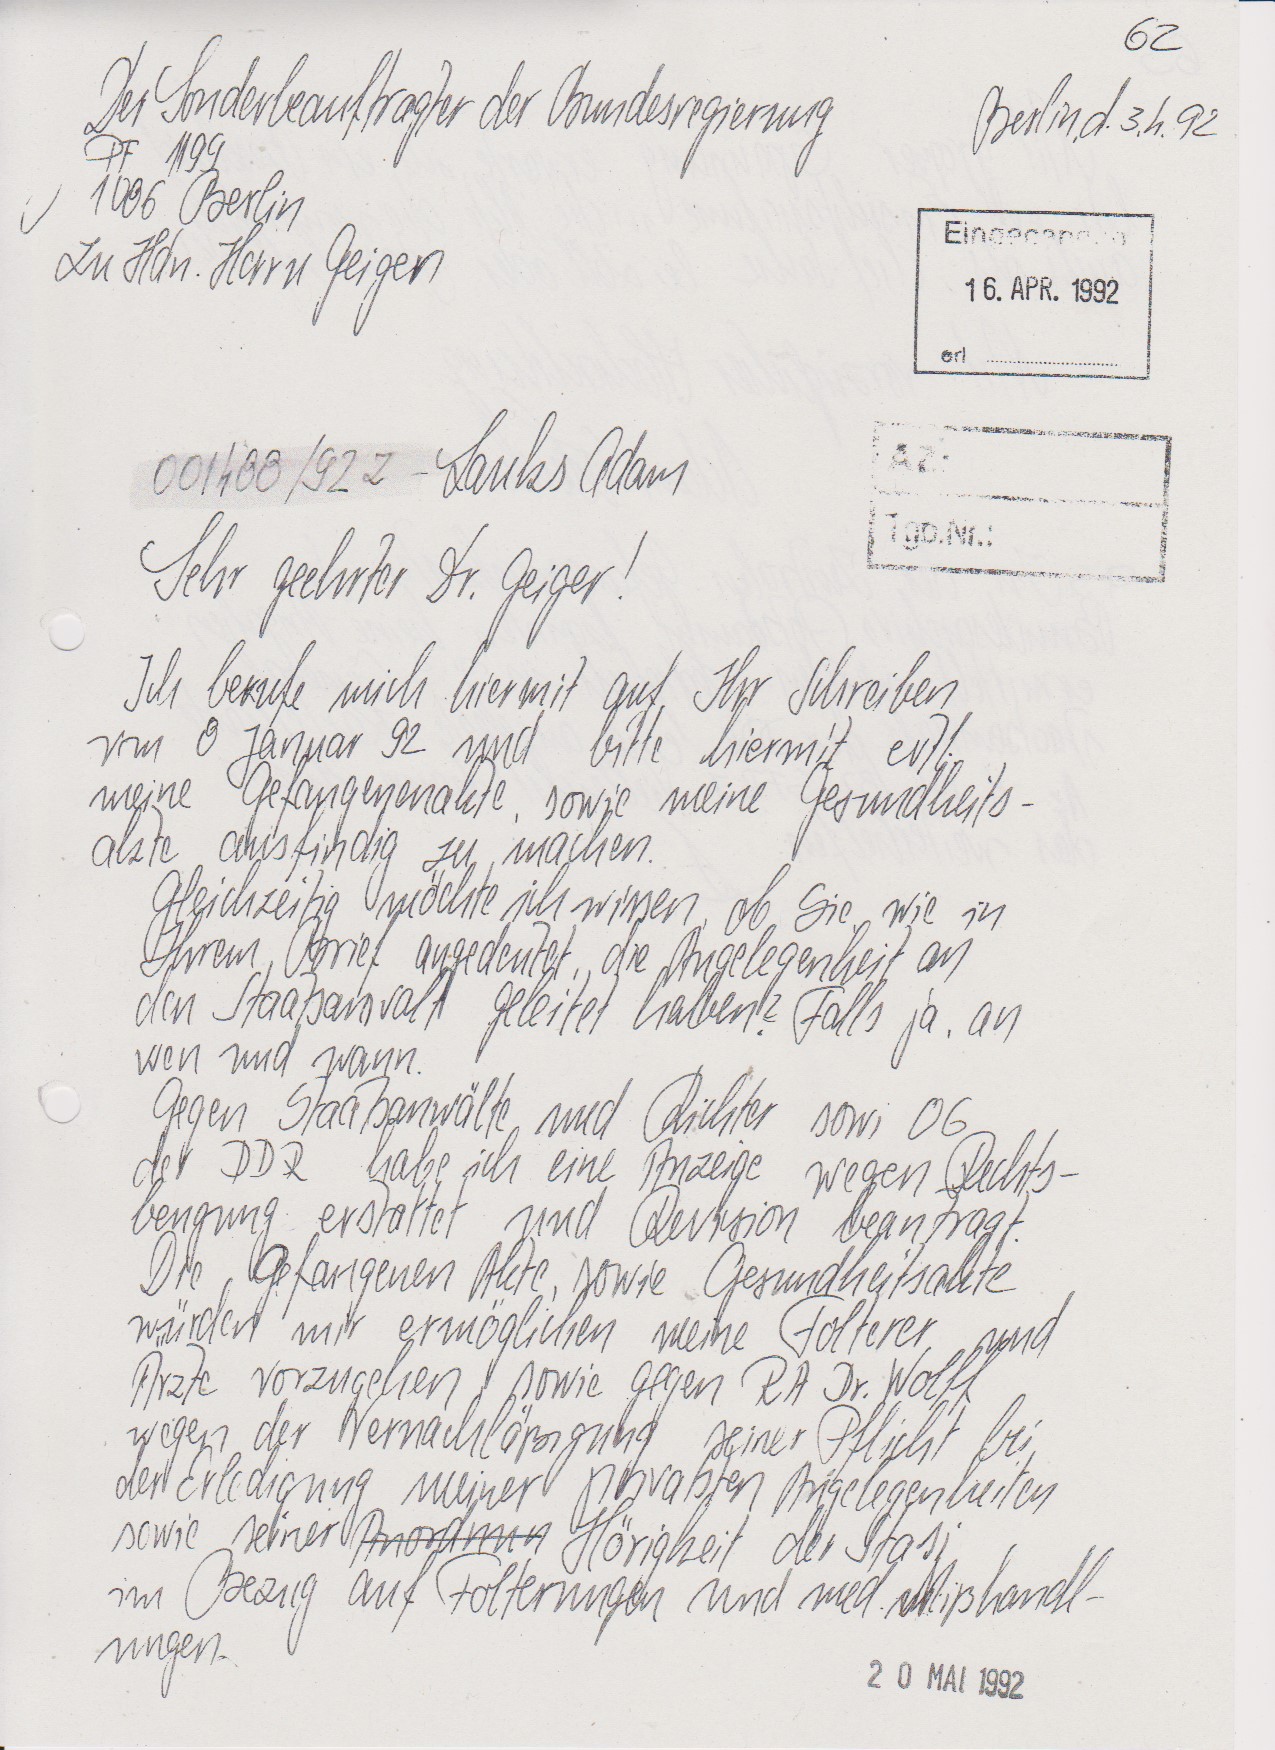 62
Der Sonderbeauftragter der Bundesregierung
Berlin, d. 3.4.92
PF 1199
1086 Berlin
Zu Hdn. Herrn Geigen
Eingegangen
16. APR. 1992
erl
001488/92 Z - Lauks Adam
AZ.:
Tgb.Nr.:
Sehr geehrter Dr. Geiger!
Ich berufe mich hiermit auf Ihr Schreiben
vom 8 Januar 92 und bitte hiermit evtl.
meine Gefangenenakte, sowie meine Gesundheits-
akte ausfindig zu machen.
Gleichzeitig möchte ich wissen, ob Sie, wie in
Ihrem Brief angedeutet, die Angelegenheit an
den Staatsanwalt geleitet haben? Falls ja, an
wen und wann.
Gegen Staatsanwälte und Richter sowi OG
der DDR habe ich eine Anzeige wegen Rechts-
beugung erstattet und Revision beantragt.
Die Gefangenen Akte, sowie Gesundheitsakte
würden mir ermöglichen meine Folterer und
Ärzte vorzugehen, sowie gegen RA Dr. Wolff
wegen der Vernachläßigung seiner Pflicht bei
der Erledigung meiner privaten Angelegenheiten
sowie seiner Anordnun Hörigkeit der Stasi
im Bezug auf Folterungen und med. Mißhandl-
ungen.
20 MAI 1992